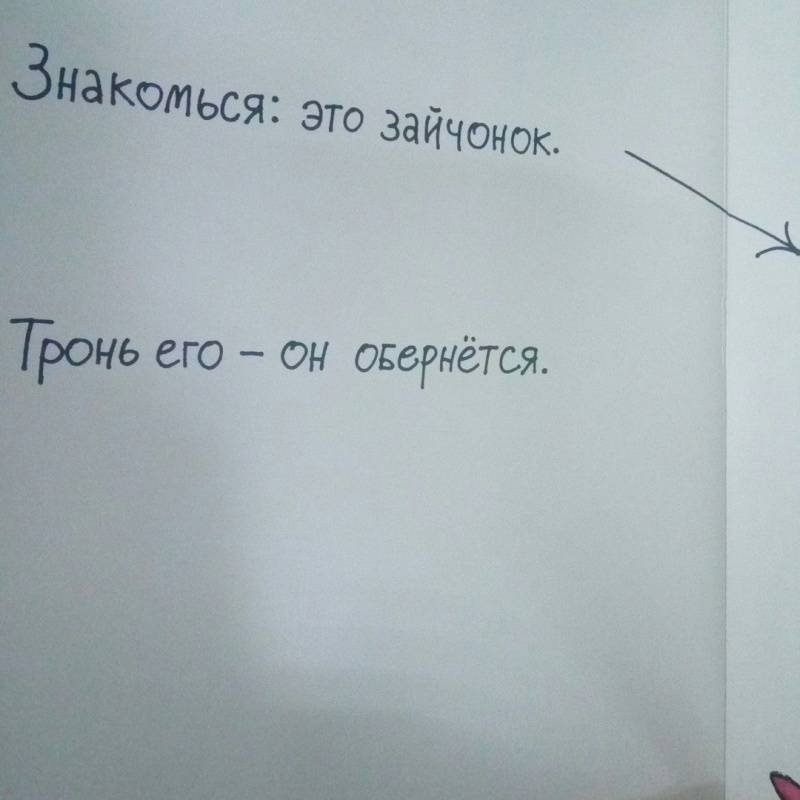 Знакомься: это зайчонок.
Тронь его – он обернётся.